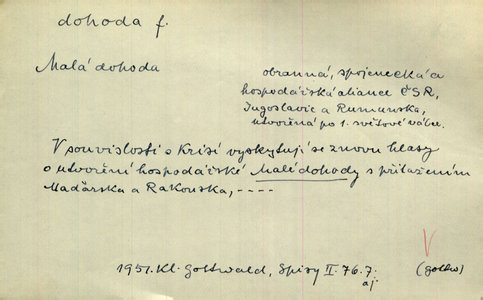 dohoda f.
Malá dohoda
obranná, spojenecká a
hospodářská aliance ČSR,
Jugoslavie a Rumunska,
utvořená po 1. světové válce.
V souvislosti s krisí vyskytují se znovu hlasy
o utvoření hospodářské Malé dohody s přibráním
Maďarska a Rakouska, ----
1951. Kl. Gottwald, Spisy II. 76.7.
aj.
(gottw)